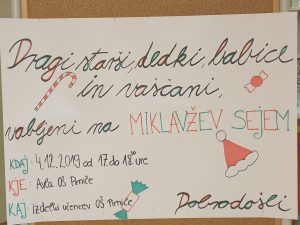 Dragi starši, dedki, babice
in vaščani,
vabljeni na MIKLAVŽEV SEJEM
KDAJ: 4.12.2019 od 17 do 18³⁰ ure
KJE: Avla OŠ Pirniče
KAJ: Izdelki učencev OŠ Pirniče
Dobrodošli